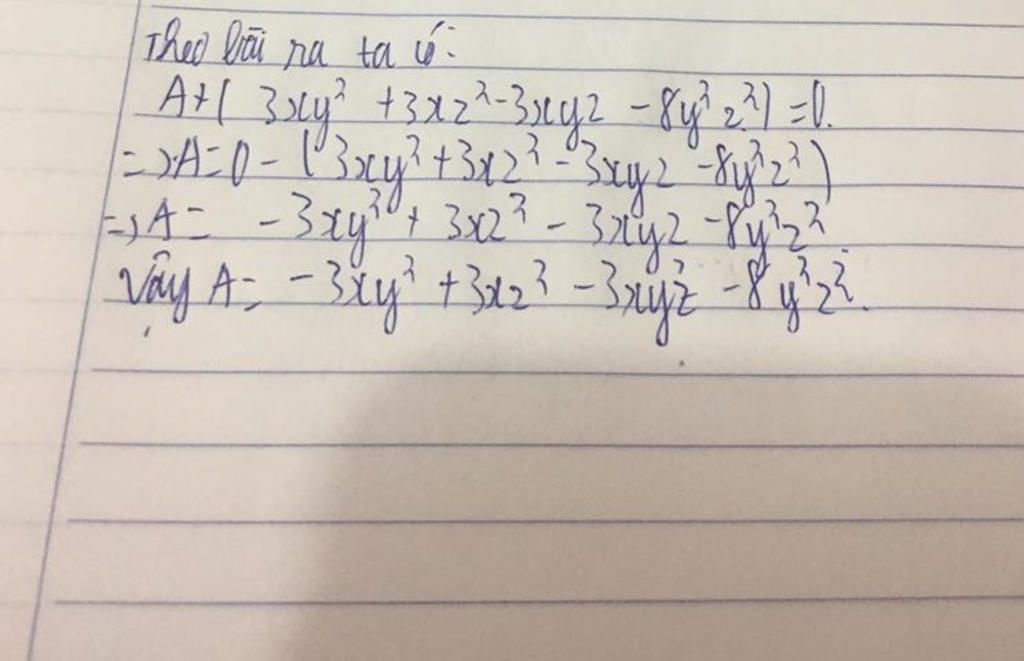 Theo bài ra ta có:
A+( 3xy² +3xz²-3xyz -8y²z²) =0.
=>A=0-(3xy²+3xz²-3xyz-8y²z²)
=>A= -3xy²+3xz²-3xyz-8y²z².
Vậy A= -3xy²+3xz²-3xyz-8y²z².